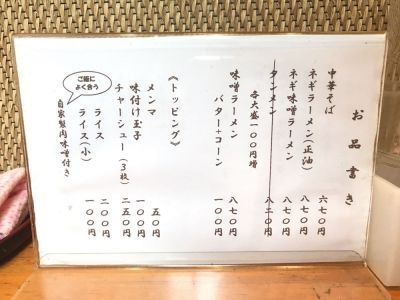 お品書き
中華そば 六七〇円
ネギラーメン（正油） 七八〇円
ネギ味噌ラーメン 八七〇円
タンメン 八二〇円
各大盛一〇〇円増
味噌ラーメン 八七〇円
バター+コーン 一〇〇円
《トッピング》
メンマ 五〇円
味付け玉子 一〇〇円
チャーシュー（3枚） 二五〇円
ライス 二〇〇円
ライス（小） 一〇〇円
ご飯に
よく合う
自家製肉味噌付き